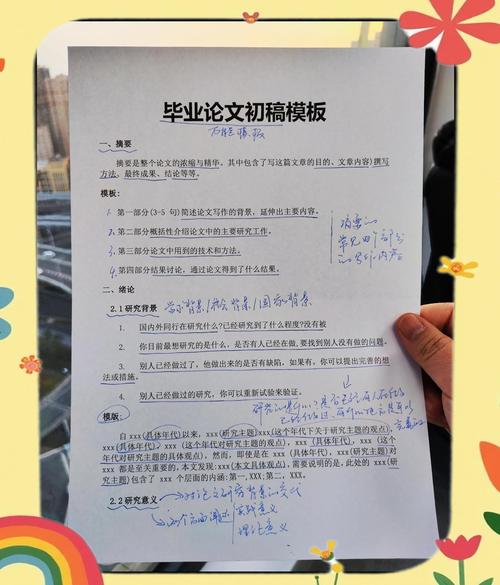 毕业论文初稿模板
万能模板
一、摘要
摘要是整个论文的浓缩与精华。其中包含了写这篇文章的目的、文章内容}撰写
方法、最终成果、结论等等。
模板:
1. 第一部分(3-5 句)简述论文写作的背景，延伸出主要内容。
2. 第二部分概括性介绍论文中的主要研究工作。
3. 第三部分论文中用到的技术和方法。
4. 第四部分结果讨论，通过论文得到了什么结果。
摘要的
常见四个部分
的写作内容
二、绪论
2.1 研究背景 学术背景/社会背景/国家背景
1. 国内外同行在研究什么?已经研究到了什么程度?没有被
2. 你目前最想研究的是什么，是否有人已经在做,要找到别人没有做的问题。
3. 别人已经做过了，他做出来的是否有缺陷，如果有，你可以提出完善的想
法或措施。
4. 别人已经做过的研究，你可以重新试验来验证。
研究的是什么?是否已经有人在做
模版:
自 xxx(具体年代)以来，xxx(研究主题)xxx(这个年代下关于研究主题的观点)，
xxx(具体年代)，xxx (这个年代对研究主题的观点)，xxx(具体年代)，xxx(这个年
代对研究主题的具体观点)，然而，即使是在 xxx (具体年代)，xxx(研究主题)对
xxx 都是至关重要的,本文发现:xxx(本文具体观点),需要说明的是,此处的 xxx(研
究主题)包含了 xxx 个层面的内涵:第一,XXX;第二，XXX。
2.2 研究意义 对论文研究背景的交代
两个方面阐述 实践意义
理论意义